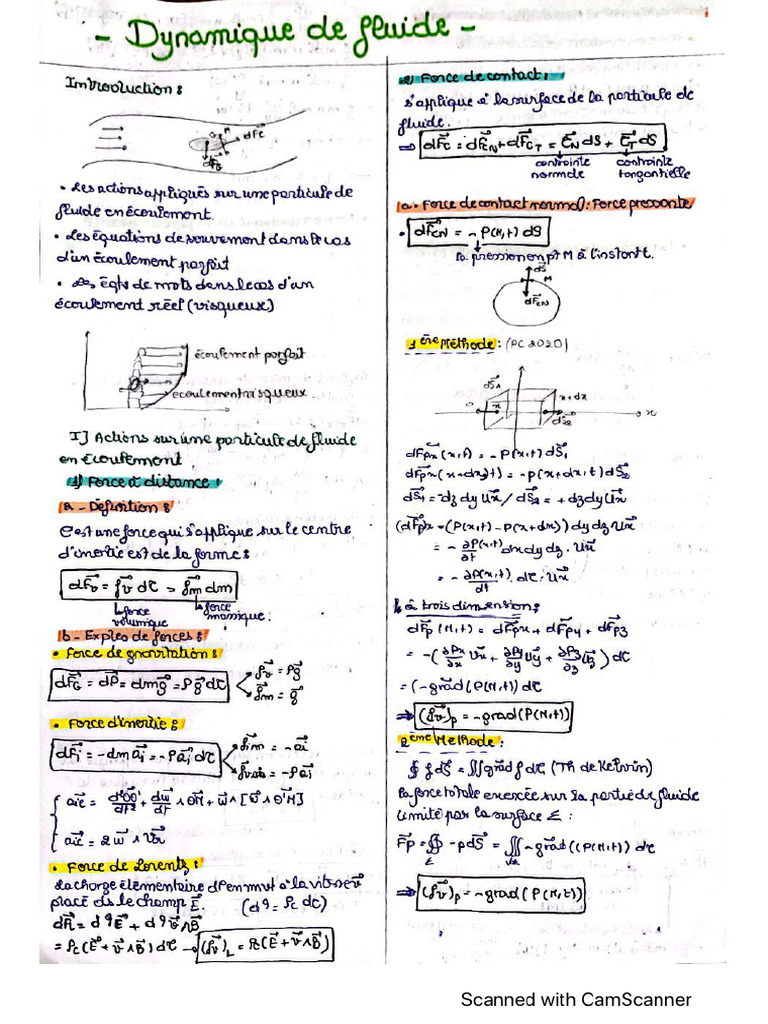 - Dynamique de fluide -
Introduction :
dF⃗c
dF⃗v
M
• Les actions appliqués sur une particule de
fluide en écoulement.
• Les équations de mouvement dans le cas
d'un écoulement parfait
• éqts de mvts dans le cas d'un
écoulement réel (visqueux)
écoulement parfait
ecoulement visqueux
I] Actions sur une particule de fluide
en écoulement.
1) Force à distance :
a - Définition :
c'est une force qui s'applique sur le centre
d'inertie est de la forme :
dF⃗v = f⃗v dτ = f⃗m dm
force volumique
force massique.
b - Exples de forces :
• Force de gravitation :
dF⃗G = dP⃗ = dm g⃗ = ρ g⃗ dτ
f⃗v = ρg⃗
f⃗m = g⃗
• Force d'inertie :
dF⃗i = -dm a⃗i = -ρ a⃗i dτ
f⃗im = -a⃗i
f⃗vi = -ρa⃗i
a⃗ie = d²OO'/dt² + dw⃗/dt ∧ O'M + w⃗ ∧ [w⃗ ∧ O'M]
a⃗ic = 2 w⃗ ∧ v⃗r
• Force de Lorentz :
la charge élementaire dq en mvt à la vitsse v⃗
placé ds le champ E⃗. (dq = ρc dτ)
dF⃗L = dq E⃗ + dq v⃗ ∧ B⃗
= ρc(E⃗ + v⃗ ∧ B⃗) dτ → (f⃗v)L = ρc(E⃗ + v⃗ ∧ B⃗)
2) Force de contact :
s'applique à la surface de la particule de
fluide.
⇒ dF⃗c = dF⃗CN + dF⃗CT = ℰ⃗N dS + ℰ⃗T dS
contrainte normale
contrainte tangantielle
a - Force de contact normal : Force pressante
• dF⃗CN = -P(M,t) dS⃗
la pression en pt M à l'instant t.
dS⃗
M
dF⃗CN
1ère Méthode : (PC 2020)
dS⃗1
x
x+dx
dS⃗2
x
dF⃗px(x,t) = -P(x,t) dS⃗1
dF⃗px(x+dx,t) = -P(x+dx,t) dS⃗2
dS⃗1 = -dz dy U⃗x / dS⃗2 = + dz dy U⃗x
(dF⃗px = (P(x,t) - P(x+dx)) dy dz U⃗x
= - ∂P(x,t)/∂t dx dy dz . U⃗x
= - ∂P(x,t)/dt . dτ . U⃗x
à trois dimension :
dF⃗p(M,t) = dF⃗px + dF⃗py + dF⃗pz
= -(∂Px/∂x U⃗x + ∂Py/∂y U⃗y + ∂Pz/∂z U⃗z) dτ
= (-grad⃗(P(M,t)) dτ
⇒ (f⃗v)p = -grad⃗(P(M,t))
2ème Methode :
∯ f dS⃗ = ∭ grad⃗ f dτ (Th de Kelvin)
la force totale exercée sur la partie de fluide
limité par la surface Σ :
F⃗p = ∯Σ -p dS⃗ = ∭ -grad⃗((P(M,t)) dτ
⇒ (f⃗v)p = -grad⃗(P(M,t))
Scanned with CamScanner